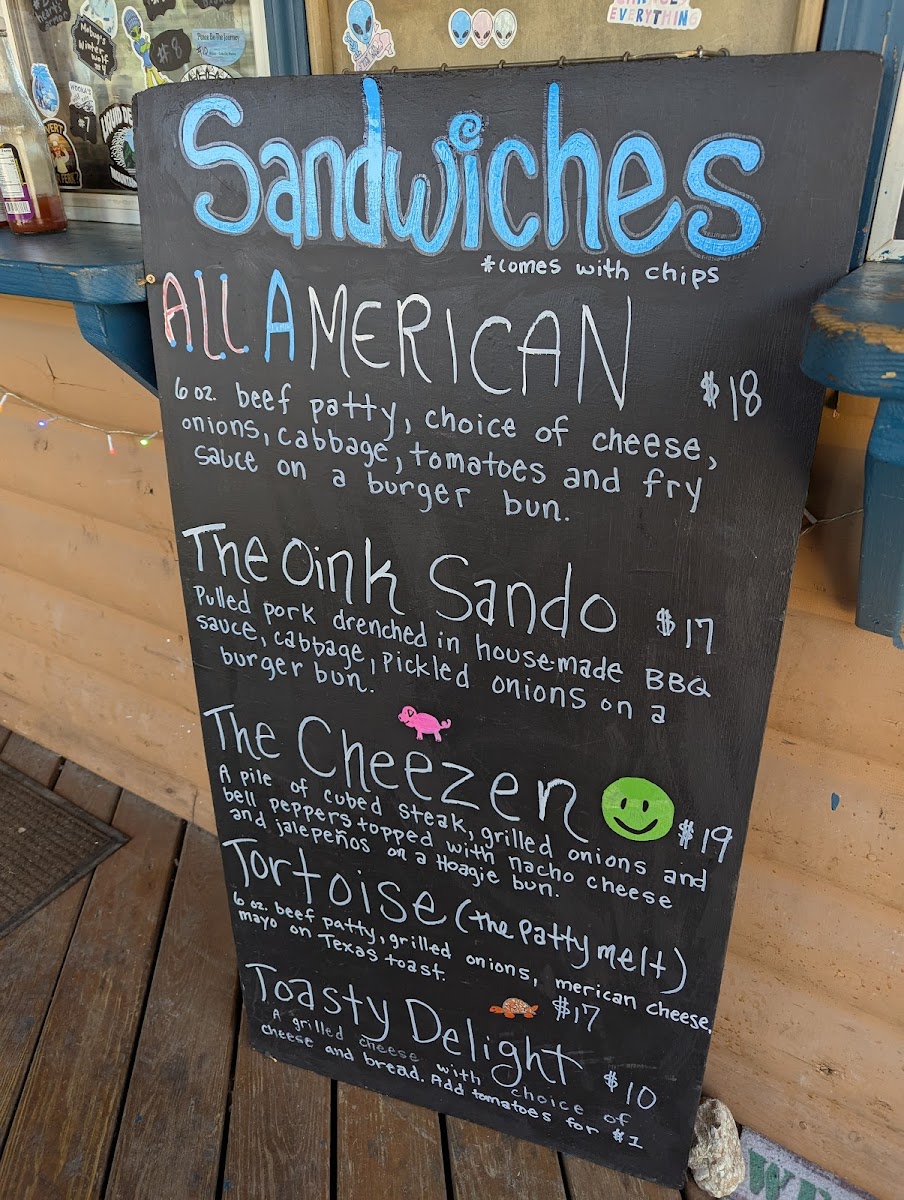 CHANGES
EVERYTHING
#8
Peace Be The Journey
#7
LIQUID DE
MOUNTAI
Sandwiches
*comes with chips
ALL AMERICAN $18
6 oz. beef patty, choice of cheese,
onions, cabbage, tomatoes and fry
sauce on a burger bun.
The Oink Sando $17
Pulled pork drenched in house-made BBQ
sauce, cabbage, pickled onions on a
burger bun.
The Cheezen $19
A pile of cubed steak, grilled onions and
bell peppers topped with nacho cheese
and jalepeños on a Hoagie bun.
Tortoise (the patty melt)
6 oz. beef patty, grilled onions, merican cheese,
mayo on Texas toast. $17
Toasty Delight $10
A grilled cheese with choice of
cheese and bread. Add tomatoes for $1